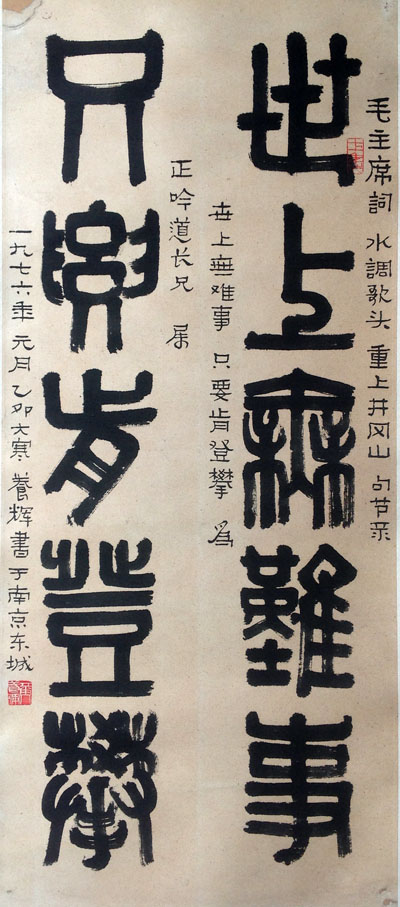 毛主席詞 水調歌头 重上井冈山 句节录
世上無難事
世上無难事 只要肯登攀 為
正吟道长兄 属
只要肯登攀
一九七六年 元月 乙卯大寒 養辉書于南京东城